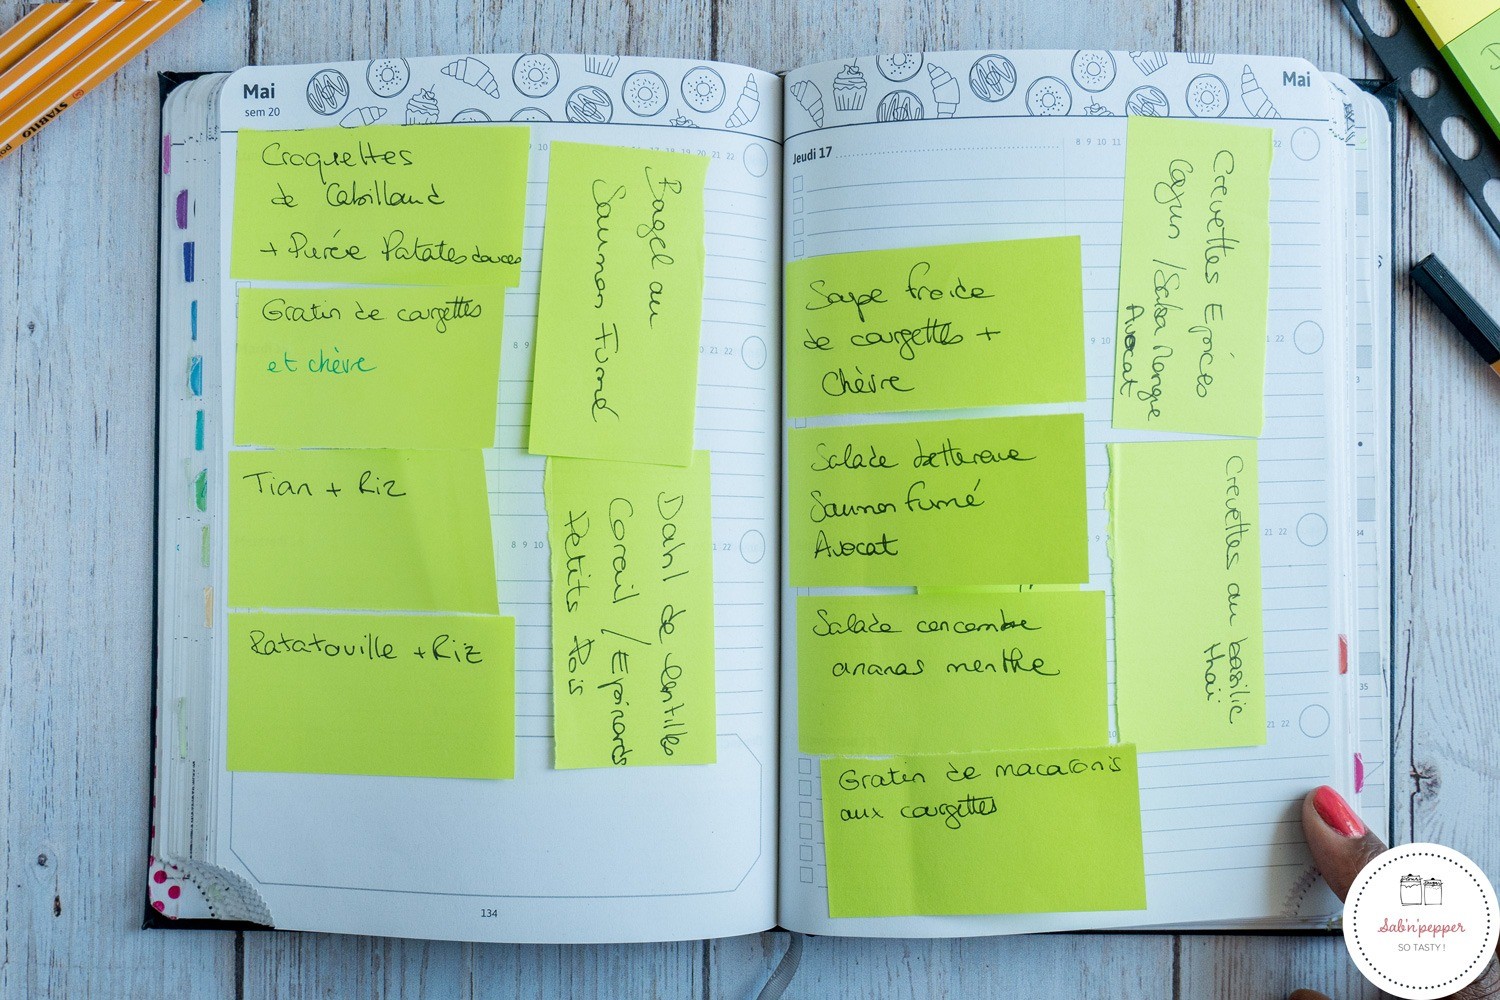 Mai
sem 20
Croquettes
de Cabillaud
+ Purée Patates douces
Gratin de courgettes
et chèvre
Tian + Riz
Ratatouille + Riz
Bagel au
Saumon Fumé
Dahl de lentilles
Corail / Epinards
Petits Pois
134
Mai
Jeudi 17
8 9 10 11
Soupe froide
de courgettes +
Chèvre
Salade betterave
Saumon fumé
Avocat
Salade concombre
ananas menthe
Gratin de macaronis
aux courgettes
Crevettes Epicées
Cajun / Salsa Mangue
Avocat
Crevettes au basilic
thaï
STABILO
Sab'n'pepper
SO TASTY !